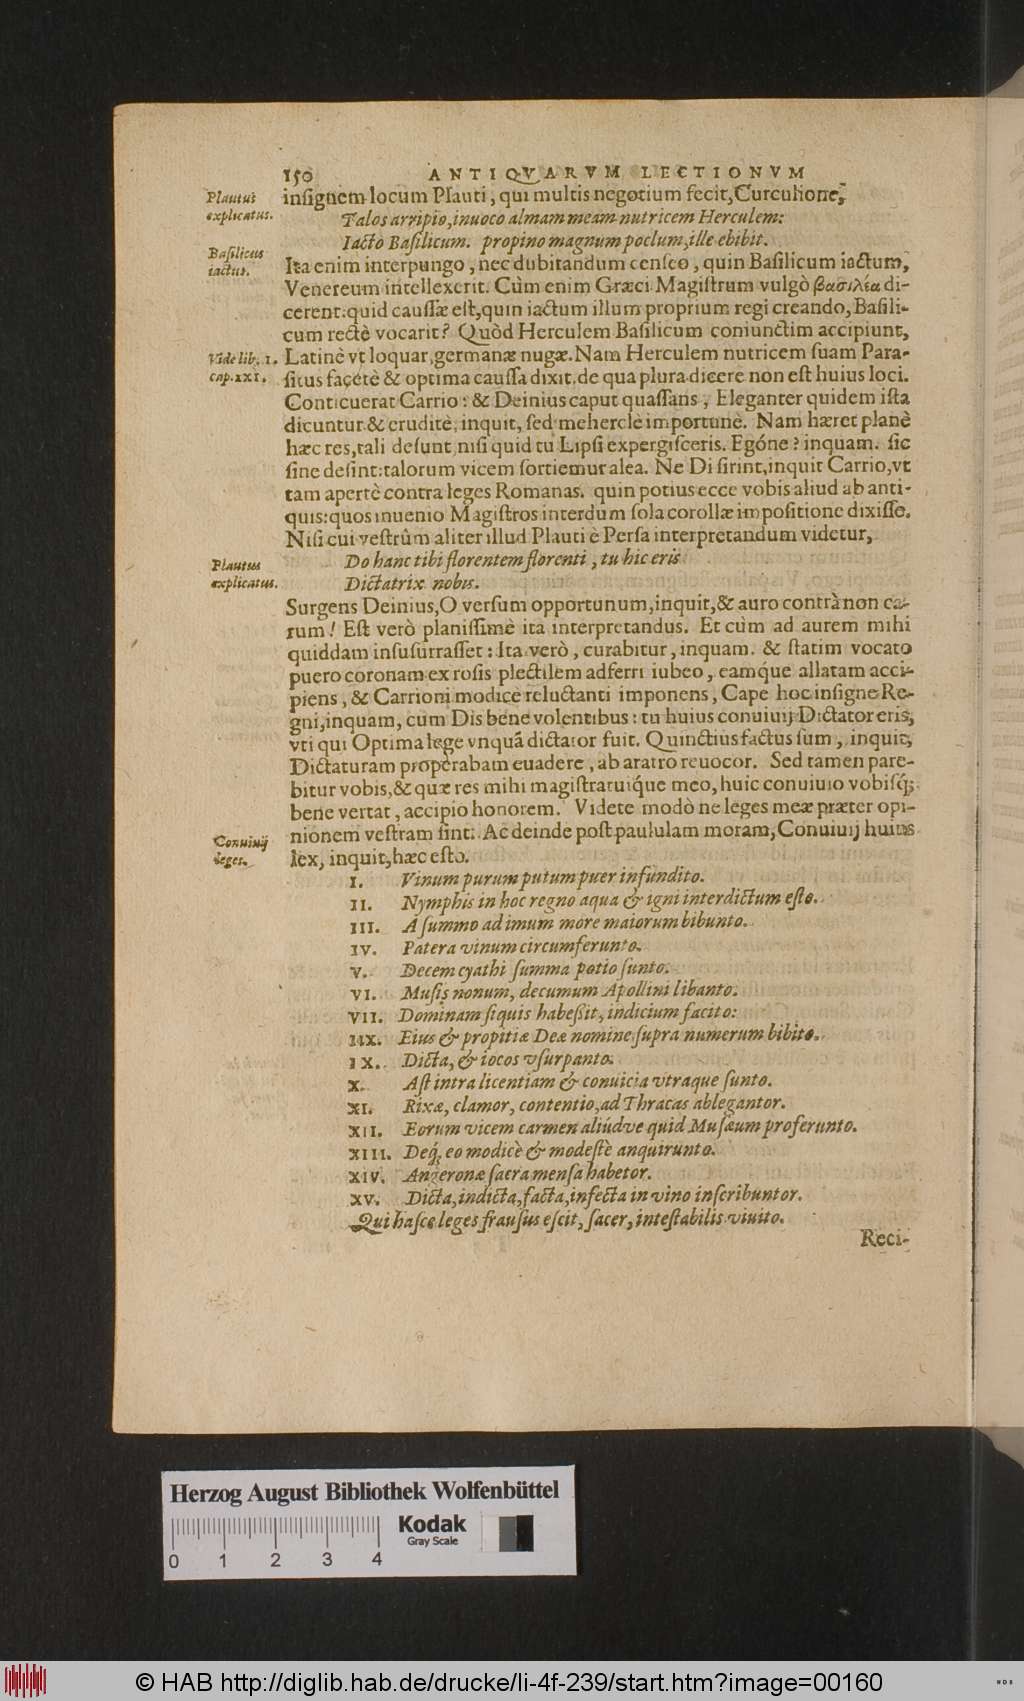 150 ANTIQVARVM LECTIONVM
Plautus
explicatus.
insignem locum Plauti, qui multis negotium fecit, Curculione,
Talos arripio, inuoco almam meam nutricem Herculem:
Iacto Basilicum. propino magnum poclum, ille ebibit.
Basilicus
iactus.
Ita enim interpungo, nec dubitandum censeo, quin Basilicum iactum,
Venereum intellexerit. Cùm enim Græci Magistrum vulgò βασιλέα di-
cerent: quid caussæ est, quin iactum illum proprium regi creando, Basili-
cum rectè vocarit? Quòd Herculem Basilicum coniunctim accipiunt,
Vide lib. 1.
cap. IXI.
Latinè vt loquar, germanæ nugæ. Nam Herculem nutricem suam Para-
situs facetè & optima caussa dixit, de qua plura dicere non est huius loci.
Conticuerat Carrio: & Deinius caput quassans, Eleganter quidem ista
dicuntur & eruditè, inquit, sed mehercle importunè. Nam hæret planè
hæc res, tali desunt, nisi quid tu Lipsi expergisceris. Egóne? inquam. sic
sine desint: talorum vicem sortiemur alea. Ne Di sirint, inquit Carrio, vt
tam apertè contra leges Romanas. quin potius ecce vobis aliud ab anti-
quis: quos inuenio Magistros interdum sola corollæ impositione dixisse.
Nisi cui vestrûm aliter illud Plauti è Persa interpretandum videtur,
Plautus
explicatus.
Do hanc tibi florentem florenti, tu hic eris
Dictatrix nobis.
Surgens Deinius, O versum opportunum, inquit, & auro contrà non ca-
rum! Est verò planissimè ita interpretandus. Et cùm ad aurem mihi
quiddam insusurrasset: Ita verò, curabitur, inquam. & statim vocato
puero coronam ex rosis plectilem adferri iubeo, eamq́ue allatam acci-
piens, & Carrioni modicè reluctanti imponens, Cape hoc insigne Re-
gni, inquam, cum Dis bene volentibus: tu huius conuiuij Dictator eris,
vti qui Optima lege vnquā dictator fuit. Quinctius factus sum, inquit,
Dictaturam properabam euadere, ab aratro reuocor. Sed tamen pare-
bitur vobis, & quæ res mihi magistratuiq́ue meo, huic conuiuio vobisq́;
bene vertat, accipio honorem. Videte modò ne leges meæ præter opi-
nionem vestram sint. Ac deinde post paululam moram, Conuiuij huius
Conuiuij
leges.
lex, inquit, hæc esto.
I. Vinum purum putum puer infundito.
II. Nymphis in hoc regno aqua & igni interdictum esto.
III. A summo ad imum more maiorum bibunto.
IV. Patera vinum circumferunto.
V. Decem cyathi summa potio sunto.
VI. Musis nonum, decumum Apollini libanto.
VII. Dominam siquis habessit, indicium facito:
IIX. Eius & propitiæ Deæ nomine supra numerum bibito.
IX. Dicta, & iocos vsurpanto.
X. Ast intra licentiam & conuicia vtraque sunto.
XI. Rixæ, clamor, contentio, ad Thracas ablegantor.
XII. Eorum vicem carmen aliudve quid Musæum proferunto.
XIII. Deq́; eo modicè & modestè anquirunto.
XIV. Angeronæ sacra mensa habetor.
XV. Dicta, indicta, facta, infecta in vino inscribuntor.
Qui hasce leges frausus escit, sacer, intestabilis viuito.
Reci-
Herzog August Bibliothek Wolfenbüttel
Kodak
Gray Scale
0 1 2 3 4
© HAB http://diglib.hab.de/drucke/li-4f-239/start.htm?image=00160